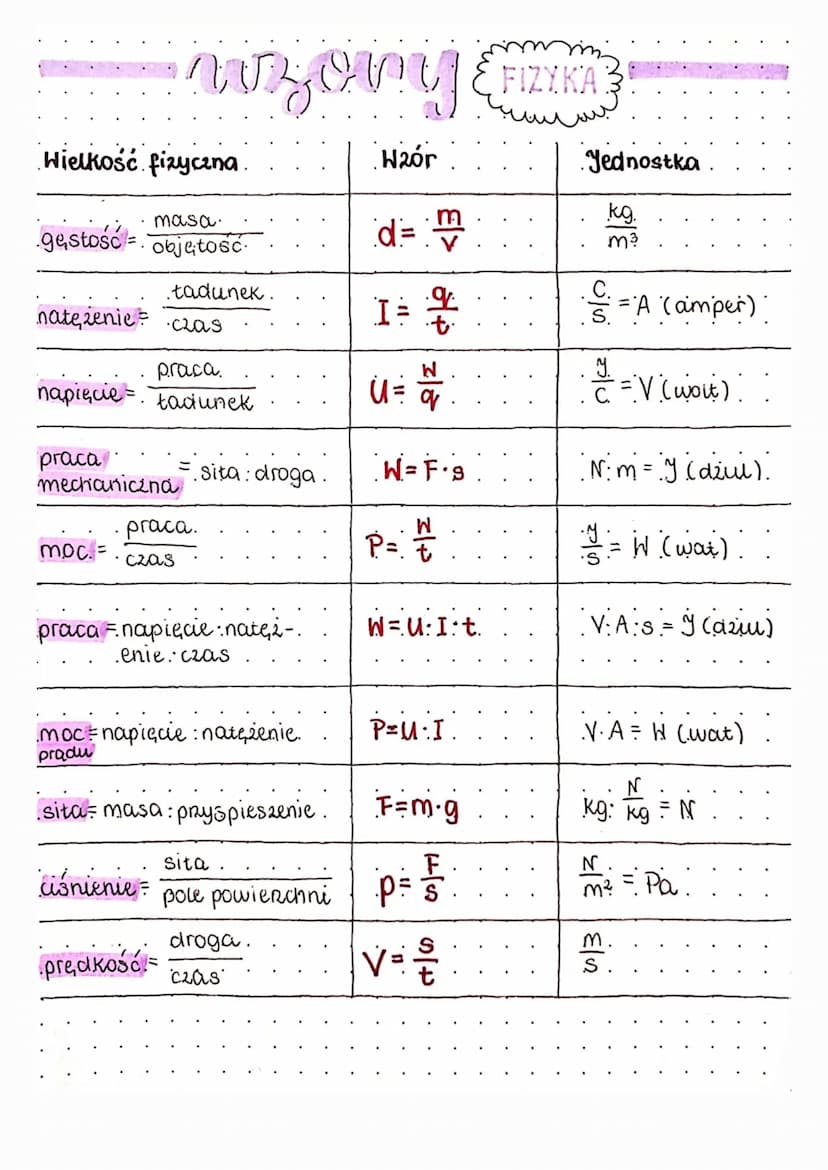 wzory FIZYKA
Wielkość fizyczna Wzór Jednostka
gęstość = masa / objętość d = m / V kg / m³
natężenie = ładunek / czas I = q / t C / s = A (amper)
napięcie = praca / ładunek U = W / q J / C = V (wolt)
praca mechaniczna = siła · droga W = F · s N · m = J (dżul)
moc = praca / czas P = W / t J / s = W (wat)
praca = napięcie · natęż- W = U · I · t V · A · s = J (dżul)
enie · czas
moc = napięcie · natężenie P = U · I V · A = W (wat)
prądu
siła = masa · przyspieszenie F = m · g kg · N / kg = N
ciśnienie = siła / pole powierzchni p = F / s N / m² = Pa
prędkość = droga / czas V = s / t m / s